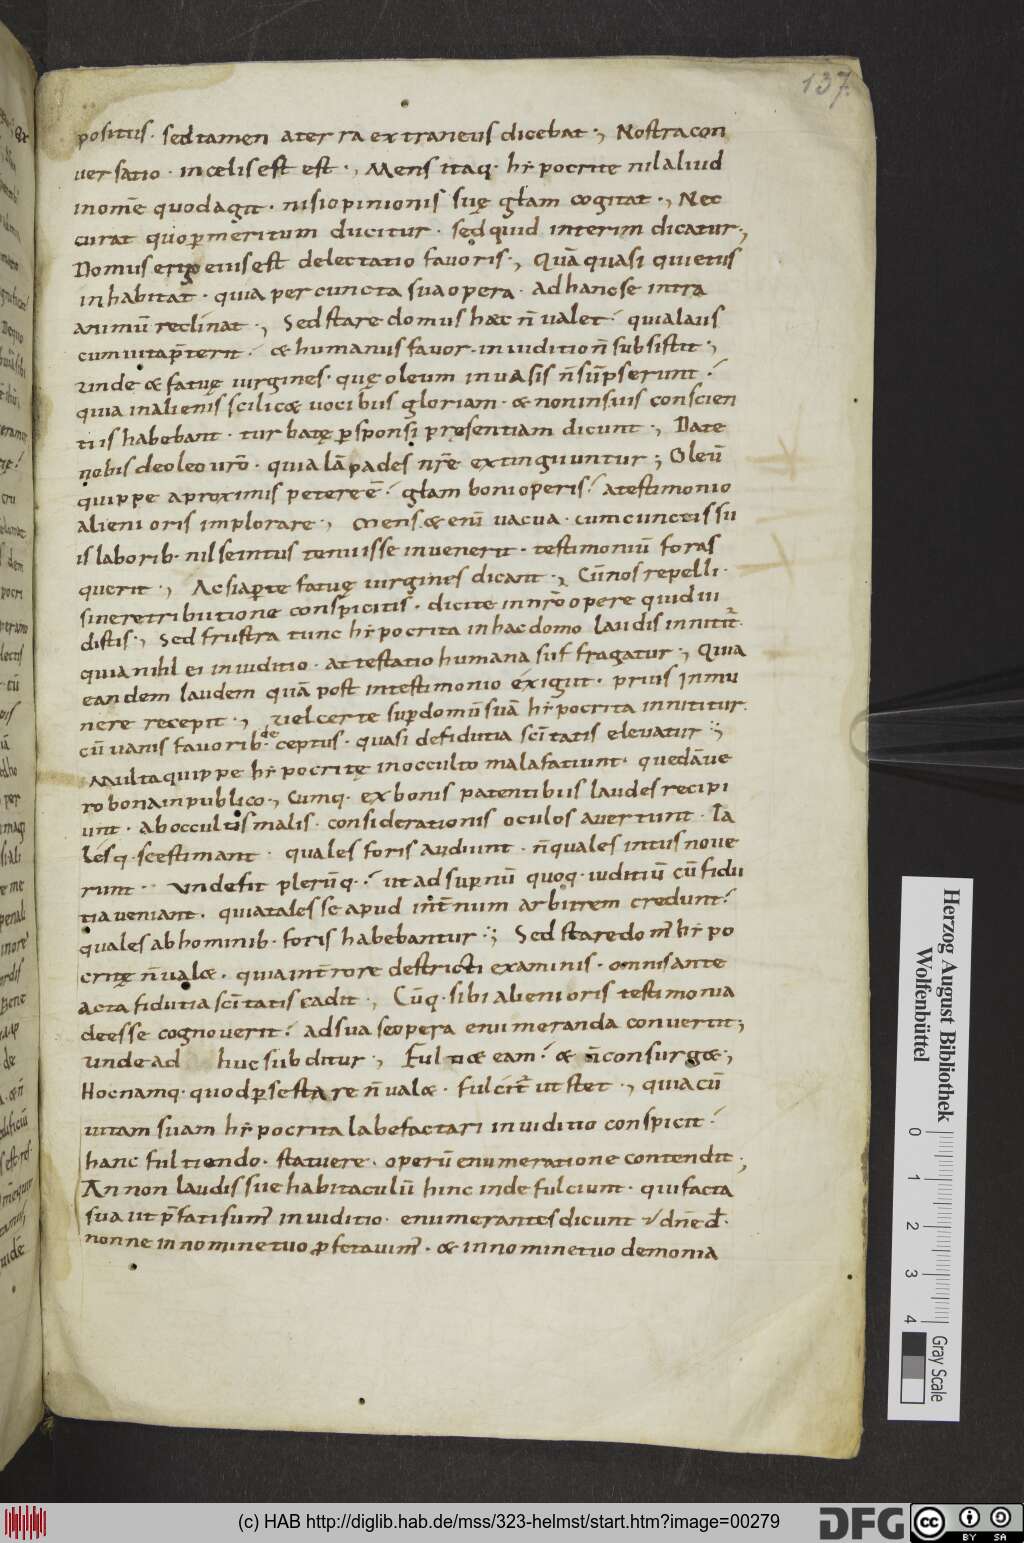 137.
positus · sed tamen a terra extraneus dicebat ·, Nostra con
versatio · in cęlis est est ·, Mens itaq· hẏpocrite nil aliud
in om̄e quod agit · nisi opinionis suę głam cogitat ·, Nec
curat quo ꝑ meritum ducitur · sed quid interim dicatur ·,
Domus ergo eius est delectatio favoris ·, Quā quasi quietus
inhabitat · quia per cuncta sua opera · ad hanc se intra
animū reclinat ·, Sed stare domus hæc n̄ valet · quia laus
cum vita p̄terit · & humanus favor · in iuditio n̄ subsistit ·,
unde & fatuę virgines · quę oleum in vasis n̄ sūpserunt ·
quia in alienis scilic& vocibus gloriam · & non in suis conscien
tiis habebant · turbatę ꝑ sponsi presentiam dicunt ·, Date
nobis de oleo vr̄o · quia lāpades nr̄e extinguuntur ; Oleū
quippe a proximis petere ē · głam boni operis · a testimonio
alieni oris implorare ·, Mens & enī vacua · cum cunctis su
is laborib· nil se intus tenuisse invenerit · testimoniū foras
querit ·, Ac si aꝑte fatuę virgines dicant ·, Cū nos repelli ·
sine retributione conspicitis · dicite in nr̄o opere quid vi
distis ·, Sed frustra tunc hẏpocrita in hac domo laudis innitit̄ ·
quia nihl ei in iuditio · attestatio humana suffragatur ·, Quia
eandem laudem quā post in testimonio exigit · prius in mu
nere recepit ·, Vel certe suꝑ domū suā hẏpocrita innititur ·
cū vanis favorib· deceptus · quasi de fidutia scītatis elevatur ·,
Multa quippe hẏpocritę in occulto mala fatiunt · quedā ve
ro bona in publico ·, Cumq· ex bonis patentibus laudes recipi
unt · ab occultis malis · considerationis oculos avertunt · Ta
lesq· se estimant · quales foris audiunt · n̄ quales intus nove
runt · Unde fit plerūq· · ut ad supnū quoq· iuditiū cū fidu
tia veniant · quia tales se apud int̄num arbitrem credunt ·
quales ab hominib· foris habebantur ·; Sed stare dom̄ hẏpo
critę n̄ val& · quia in t̄rore destricti examinis · omnis ante
acta fidutia scītatis cadit ·, Cūq· sibi alieni oris testimonia
deesse cognoverit · ad sua se opera enumeranda convertit ;
Unde ad huc subditur ·, Fulti& eam · & n̄ consurg& ·,
Hoc namq· quod ꝑ se stare n̄ val& · fulcit̄ ut stet ·, quia cū
vitam suam hẏpocrita labefactari in iuditio conspicit ·
hanc fultiendo · statuere · operū enumeratione contendit ·,
An non laudis sue habitaculū hinc inde fulciunt · qui facta
sua ut p̄fati sum̄ in iuditio · enumerantes dicunt · dn̄e d̄ ·
nonne in nomine tuo ꝓfetavim̄ · & in nomine tuo demonia
Herzog August Bibliothek
Wolfenbüttel
0 1 2 3 4
Gray Scale
(c) HAB http://diglib.hab.de/mss/323-helmst/start.htm?image=00279
DFG
cc BY SA